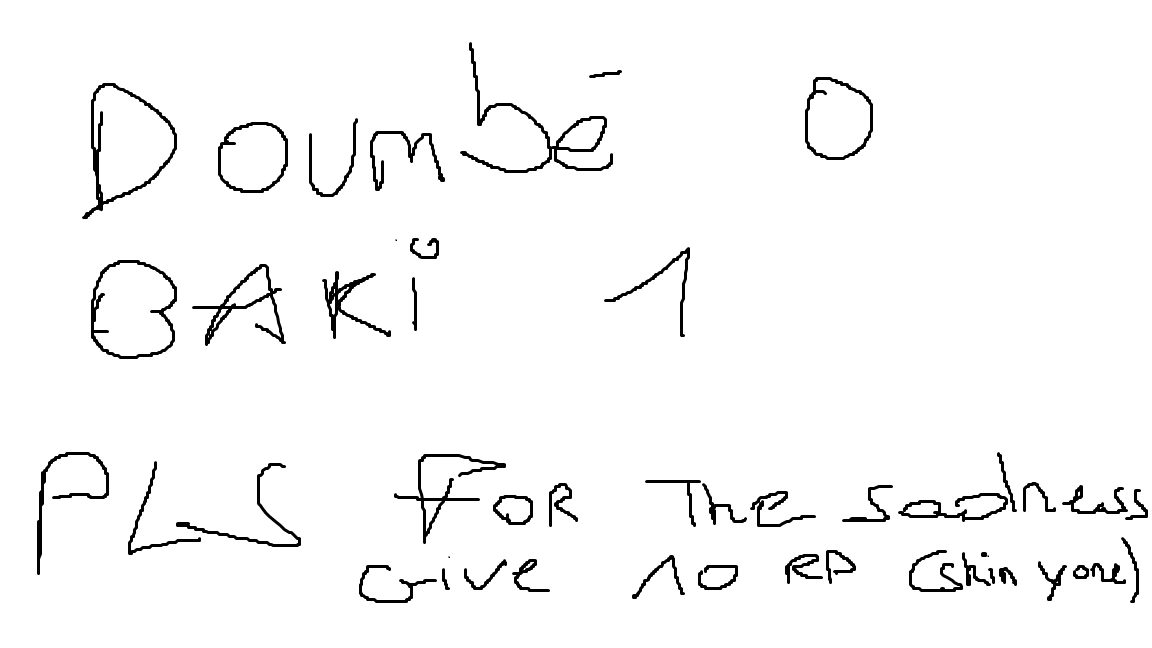 Doumbé 0
BAKi 1
PLS FOR The sadness
Give 10 RP (skin yone)